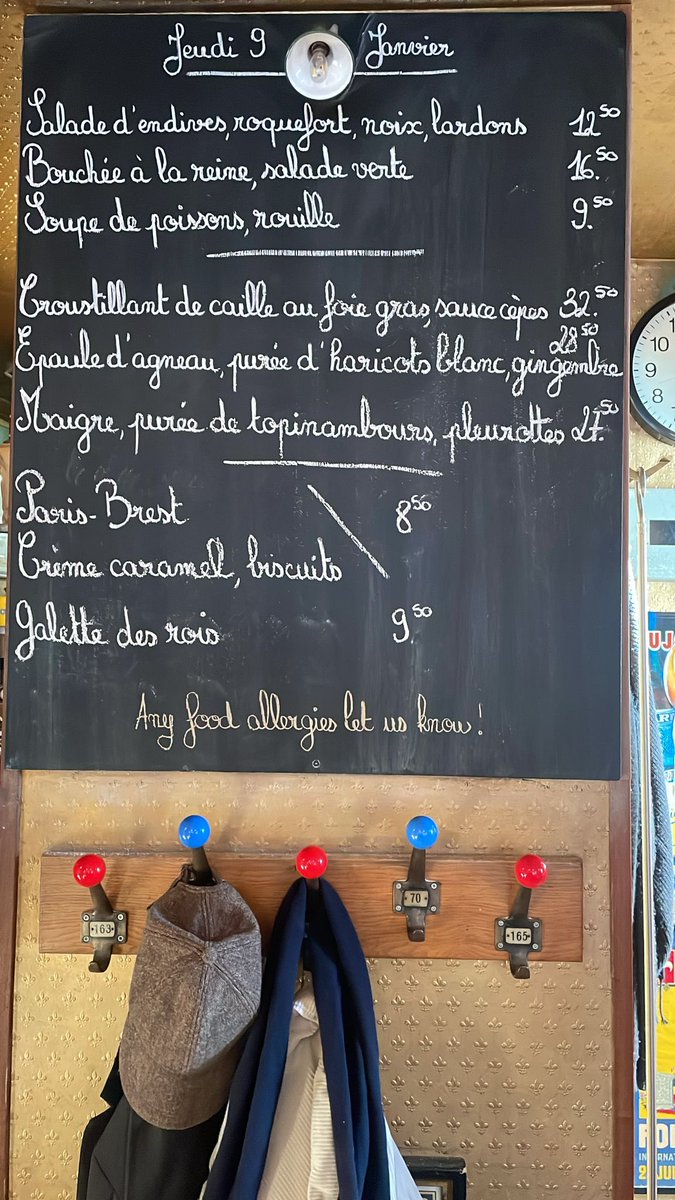 Jeudi 9 Janvier
Salade d'endives, roquefort, noix, lardons 12.50
Bouchée à la reine, salade verte 16.50
Soupe de poissons, rouille 9.50
Croustillant de caille au foie gras, sauce cèpes 32.50
Epaule d'agneau, purée d'haricots blanc, gingembre 28.50
Maigre, purée de topinambours, pleurottes 27.50
Paris-Brest 8.50
Crème caramel, biscuits
Galette des rois 9.50
Any food allergies let us know!
10
9
8
163
70
165